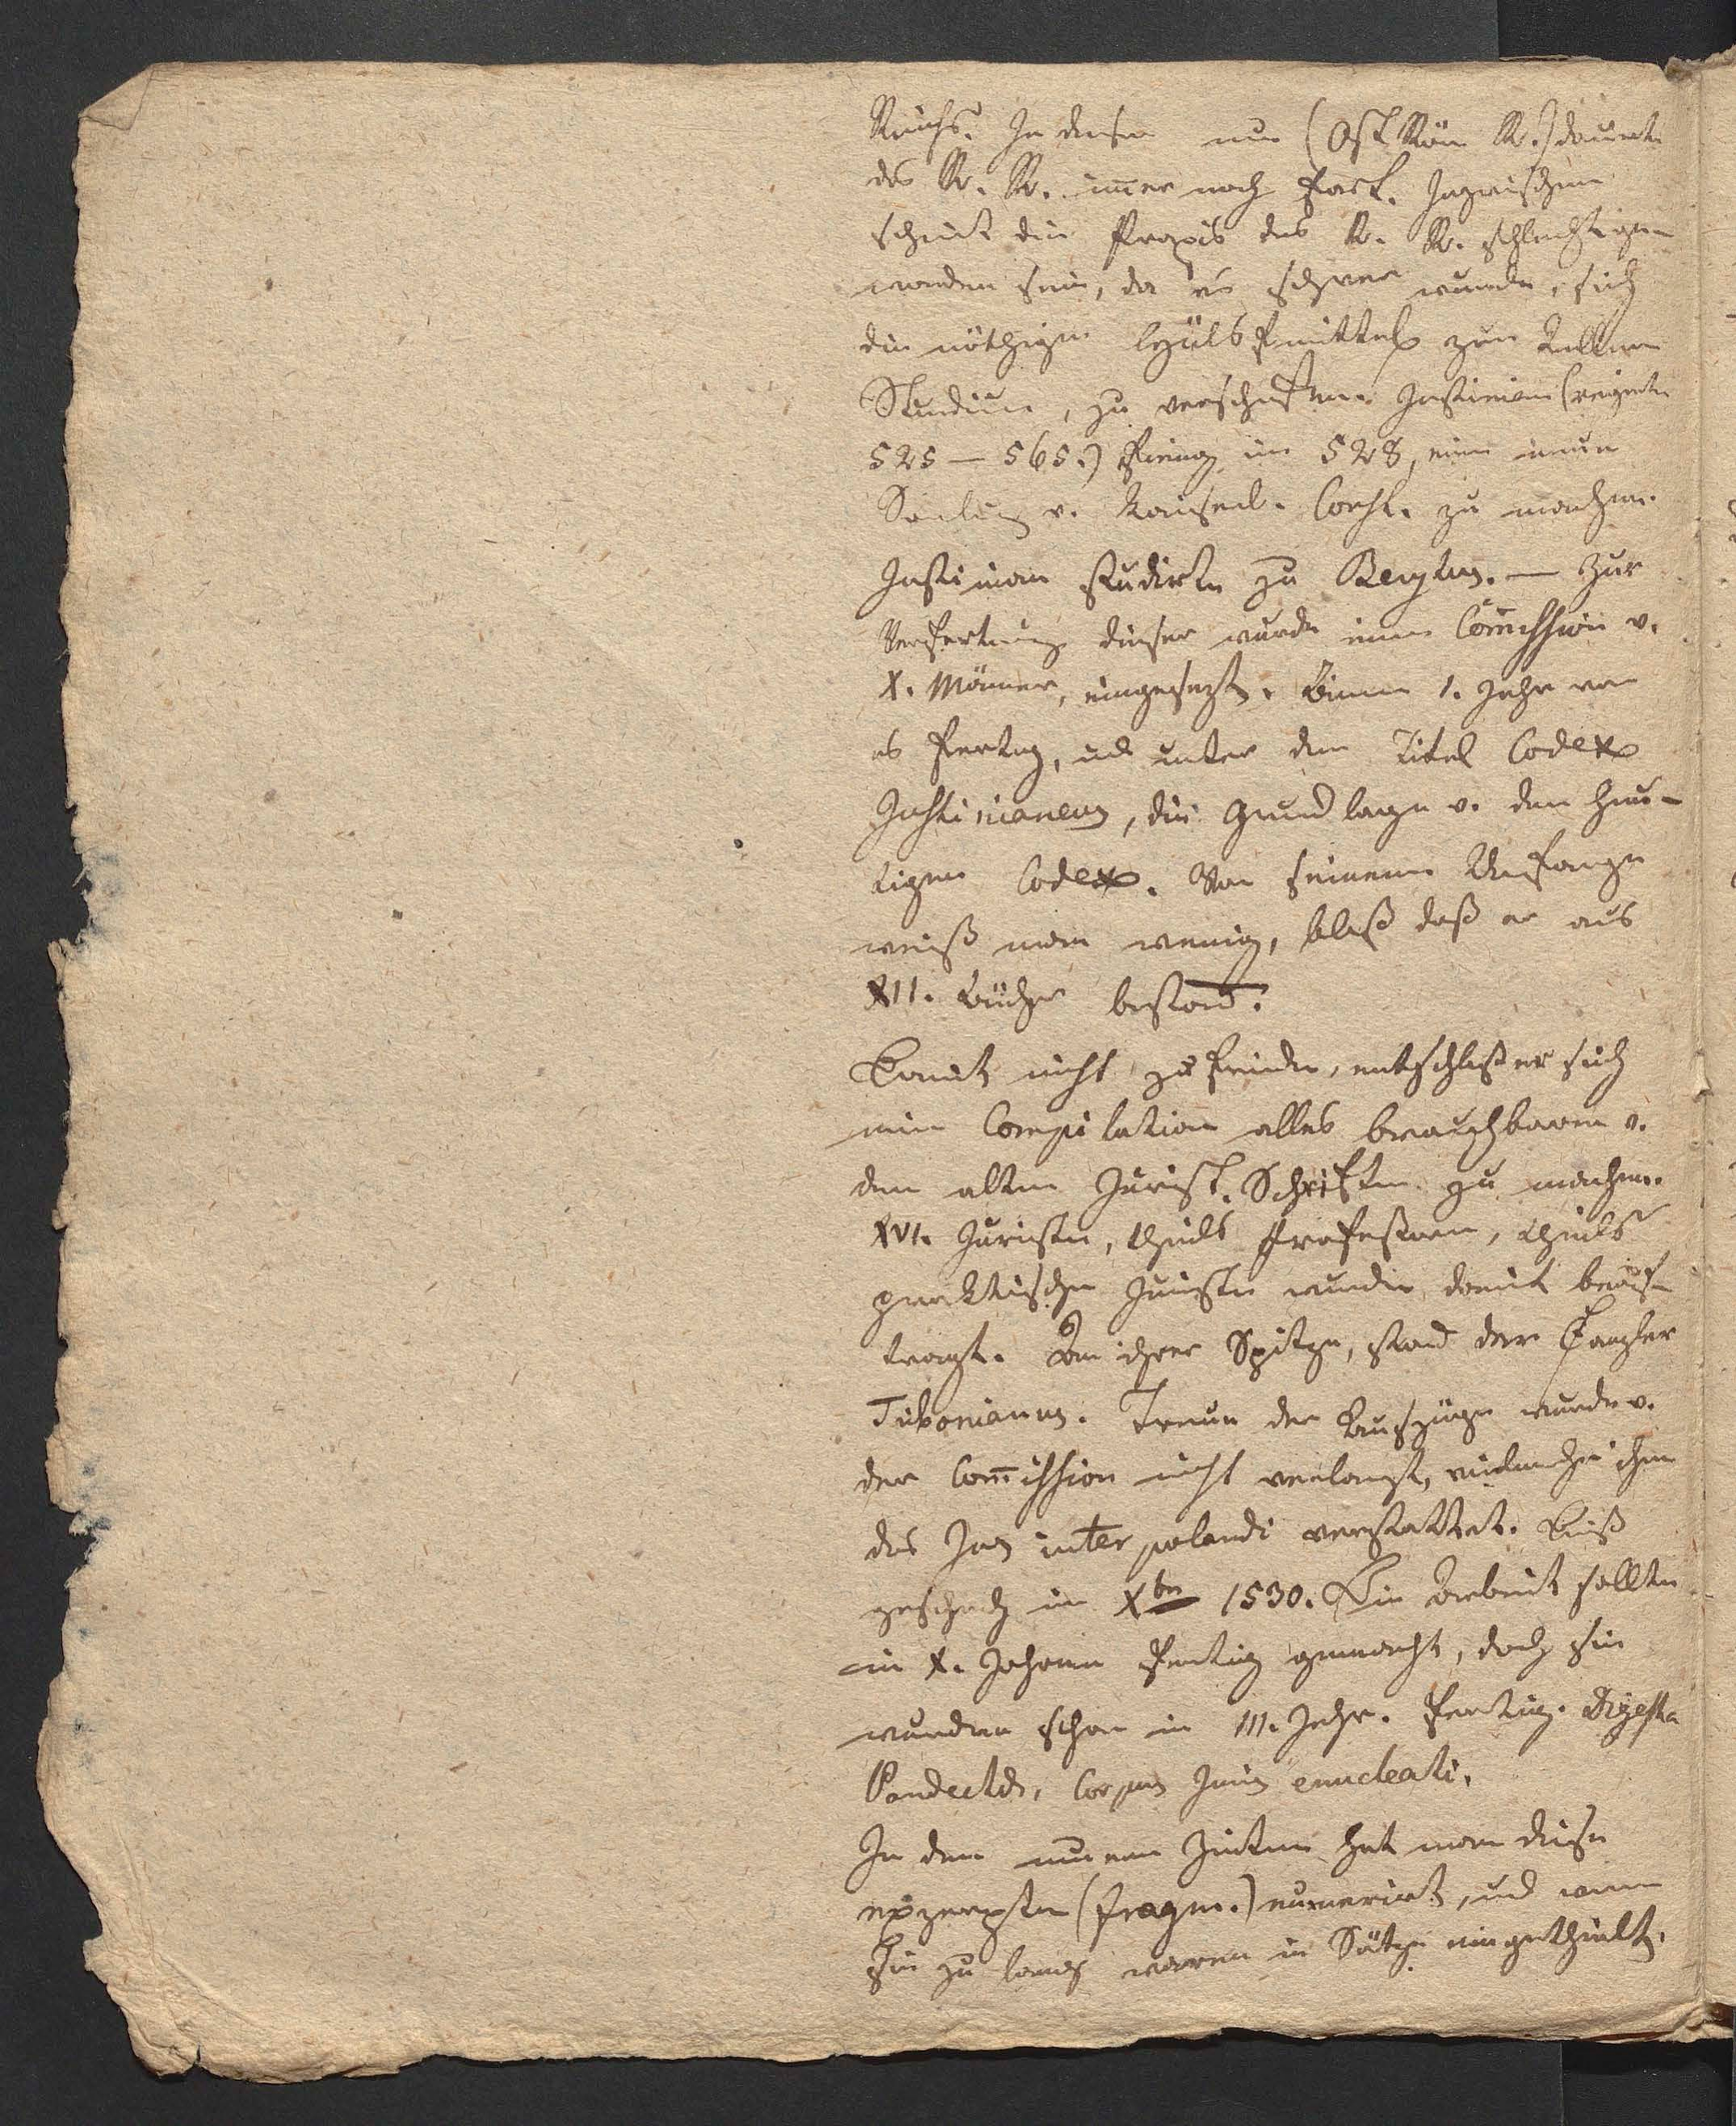 Reichs. In diesem nun (Ost Röm R.) dauerte
das R. R. im̄er noch fort. Inzwischen
scheint die Praxis des R. R. schlechter
worden sein, da es schwer wurde, sich
die nöthigen Hülfsmittel zum
Studium, zu verschaffen. Justinian (regierte
525 — 565.) fieng im 528, eine neue
Sam̄lung v. Kaiserl. Const. zu machen.
Justinian studirte zu Berytus. — Zur
Verfertigung dieser wurde eine Com̄ission v.
X. Männer, eingesezt. Binnen 1. Jahr war
es fertig, und unter dem Titel Codex
Justinianeus, die Grundlage v. dem heu-
tigen Codex. Von seinem Umfange
weiß man wenig, bloß daß er aus
XII. Bücher bestand.
Damit nicht zufrieden, entschloß er sich
eine Compilation alles brauchbaren v.
den alten Jurist. Schriften zu machen.
XVI. Juristen, theils Professoren, theils
praktische Juristen wurden damit beauf-
tragt. An ihrer Spitze, stand der Canzler
Tribonianus. Treue der Auszüge wurde v.
der Com̄ission nicht verlangt, vielmehr ihm
das Jus interpolandi verstattet. Dieß
geschah im Xbr 1530. Die Arbeit sollte
in X. Jahren fertig gemacht, doch sie
wurden schon in III. Jahr. fertig. Digesta
Pandectae, Corpus Juris enucleati.
In den neuern Zeiten hat man diese
exzerpten (fragm.) numerirt, und wenn
sie zu lang waren in Sätze eingetheilt.